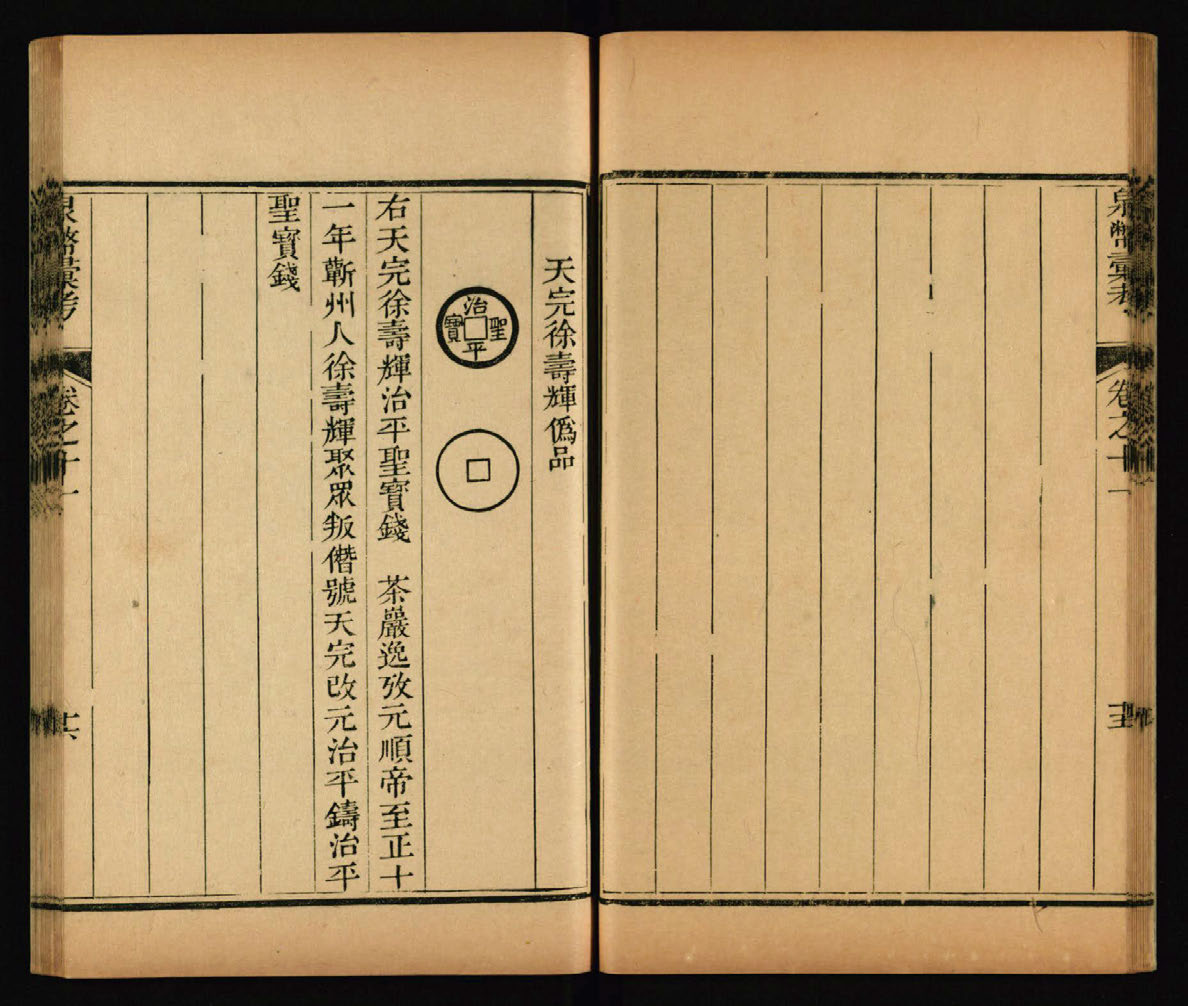 泉幣彙考
卷之十一
十五
天完徐壽輝僞品
治平聖寶
右天完徐壽輝治平聖寶錢　茶巖逸攷元順帝至正十
一年蘄州人徐壽輝聚眾叛僭號天完改元治平鑄治平
聖寶錢
泉幣彙考
卷之十一
十六